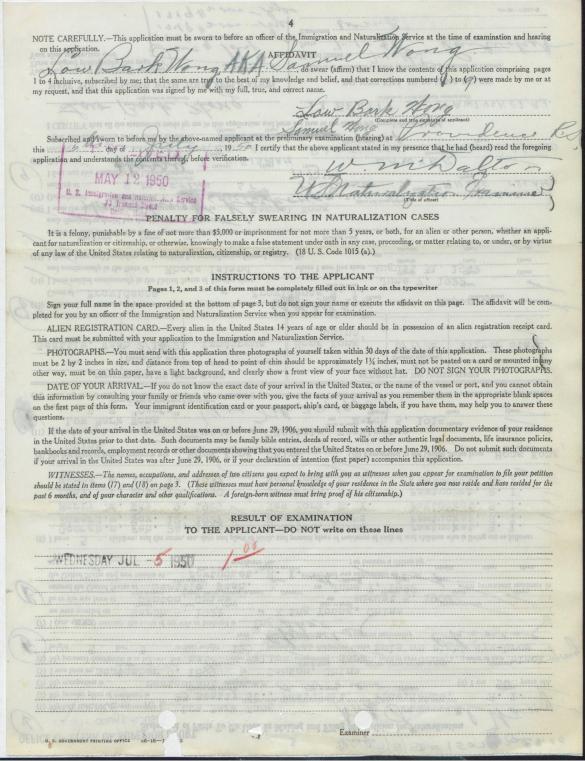 4
NOTE CAREFULLY.—This application must be sworn to before an officer of the Immigration and Naturalization Service at the time of examination and hearing
on this application.
AFFIDAVIT
I, Low Bark Wong AKA Samuel Wong, do swear (affirm) that I know the contents of this application comprising pages
1 to 4 inclusive, subscribed by me; that the same are true to the best of my knowledge and belief, and that corrections numbered ( ) to ( ) were made by me or at
my request, and that this application was signed by me with my full, true, and correct name.
Low Bark Wong
(Complete and true signature of applicant)
Samuel Wong
Subscribed and sworn to before me by the above-named applicant at the preliminary examination (hearing) at Providence R.I.
this day of July, 1950. I certify that the above applicant stated in my presence that he had (heard) read the foregoing
application and understands the contents thereof, before verification.
Wm Dalton
US Naturalization Examiner
(Title of officer)
MAY 12 1950
U. S. Immigration and Naturalization Service
PENALTY FOR FALSELY SWEARING IN NATURALIZATION CASES
It is a felony, punishable by a fine of not more than $5,000 or imprisonment for not more than 5 years, or both, for an alien or other person, whether an appli-
cant for naturalization or citizenship, or otherwise, knowingly to make a false statement under oath in any case, proceeding, or matter relating to, or under, or by virtue
of any law of the United States relating to naturalization, citizenship, or registry. (18 U. S. Code 1015 (a).)
INSTRUCTIONS TO THE APPLICANT
Pages 1, 2, and 3 of this form must be completely filled out in ink or on the typewriter
Sign your full name in the space provided at the bottom of page 3, but do not sign your name or execute the affidavit on this page. The affidavit will be com-
pleted for you by an officer of the Immigration and Naturalization Service when you appear for examination.
ALIEN REGISTRATION CARD.—Every alien in the United States 14 years of age or older should be in possession of an alien registration receipt card.
This card must be submitted with your application to the Immigration and Naturalization Service.
PHOTOGRAPHS.—You must send with this application three photographs of yourself taken within 30 days of the date of this application. These photographs
must be 2 by 2 inches in size, and distance from top of head to point of chin should be approximately 1¼ inches, must not be pasted on a card or mounted in any
other way, must be on thin paper, have a light background, and clearly show a front view of your face without hat. DO NOT SIGN YOUR PHOTOGRAPHS.
DATE OF YOUR ARRIVAL.—If you do not know the exact date of your arrival in the United States, or the name of the vessel or port, and you cannot obtain
this information by consulting your family or friends who came over with you, give the facts of your arrival as you remember them in the appropriate blank spaces
on the first page of this form. Your immigrant identification card or your passport, ship's card, or baggage labels, if you have them, may help you to answer these
questions.
If the date of your arrival in the United States was on or before June 29, 1906, you should submit with this application documentary evidence of your residence
in the United States prior to that date. Such documents may be family bible entries, deeds of record, wills or other authentic legal documents, life insurance policies,
bankbooks and records, employment records or other documents showing that you entered the United States on or before June 29, 1906. Do not submit such documents
if your arrival in the United States was after June 29, 1906, or if your declaration of intention (first paper) accompanies this application.
WITNESSES.—The names, occupations, and addresses of two citizens you expect to bring with you as witnesses when you appear for examination to file your petition
should be stated in items (17) and (18) on page 3. (These witnesses must have personal knowledge of your residence in the State where you now reside and have resided for the
past 6 months, and of your character and other qualifications. A foreign-born witness must bring proof of his citizenship.)
RESULT OF EXAMINATION
TO THE APPLICANT—DO NOT write on these lines
WEDNESDAY JUL -5 1950 1 00
U. S. GOVERNMENT PRINTING OFFICE
Examiner